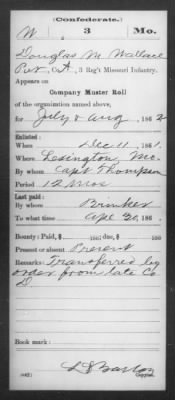 (Confederate.)
W 3 Mo.
Douglas M Wallace
Pvt, Co. A, 3 Reg't Missouri Infantry.
Appears on
Company Muster Roll
of the organization named above,
for July & Aug, 1862
Enlisted:
When Dec 11, 1861.
Where Lexington, Mo.
By whom Capt Thompson
Period 12 mos
Last paid:
By whom Brinker
To what time Apl 30, 186 .
Bounty: Paid $ 100; due $ 100
Present or absent Present
Remarks: Transferred by
order from late Co
D
Book mark:
(642)
Copyist.